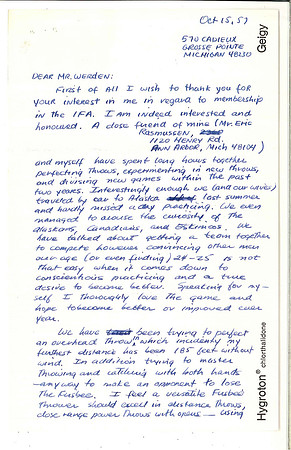 Oct 15, 57
570 CADIEUX
GROSSE POINTE
MICHIGAN 48230
DEAR MR. WERDEN:
First of All I wish to thank you for
your interest in me in regard to membership
in the IFA. I am indeed interested and
honoured. A close friend of mine (Mr. Eric
Rasmussen,
1120 HENRY Rd.
Ann Arbor, Mich 48104)
and myself have spent long hours together
perfecting Throws, experimenting in new Throws,
and divising new games within the past
two years. Interestingly enough we (and our wives)
traveled by car to Alaska last summer
and hardly missed a day practicing. We even
managed to arouse the curiosity of the
Alaskans, Canadians, and Eskimoes. We
have talked about getting a team together
to compete however convincing other men
our age (or even finding) 24-25 is not
that easy when it comes down to
conscienhous practicing and a true
desire to become better. Speaking for my-
self I thoroughly love the game and
hope to become better or improved every
year.
We have been trying to perfect
an overhead Throw, in which incidently my
furthest distance has been 185 feet without
wind. In addition trying to master
Throwing and catching with both hands
—anyway to make an opponent to lose
The Fusbee. I feel a versatile Fusbee
Thrower should excel in distance Throws,
close range power Throws with curves — using
Geigy
Hygroton® chlorthalidone